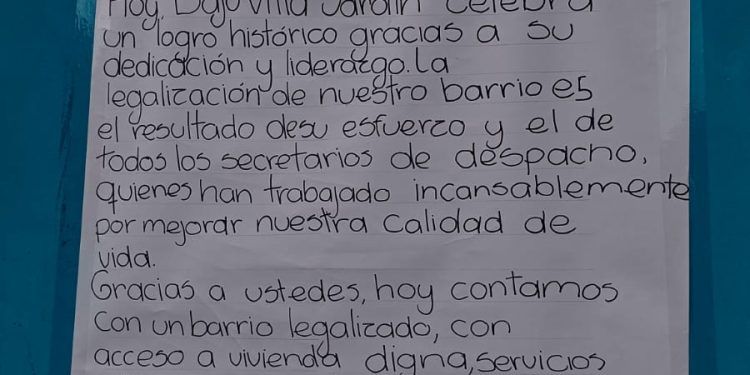 Hoy, Bajo Villa Jardín celebra
un logro histórico gracias a su
dedicación y liderazgo. La
legalización de nuestro barrio es
el resultado desu esfuerzo y el de
todos los secretarios de despacho,
quienes han trabajado incansablemente
por mejorar nuestra calidad de
vida.
Gracias a ustedes, hoy contamos
con un barrio legalizado, con
acceso a vivienda digna, servicios